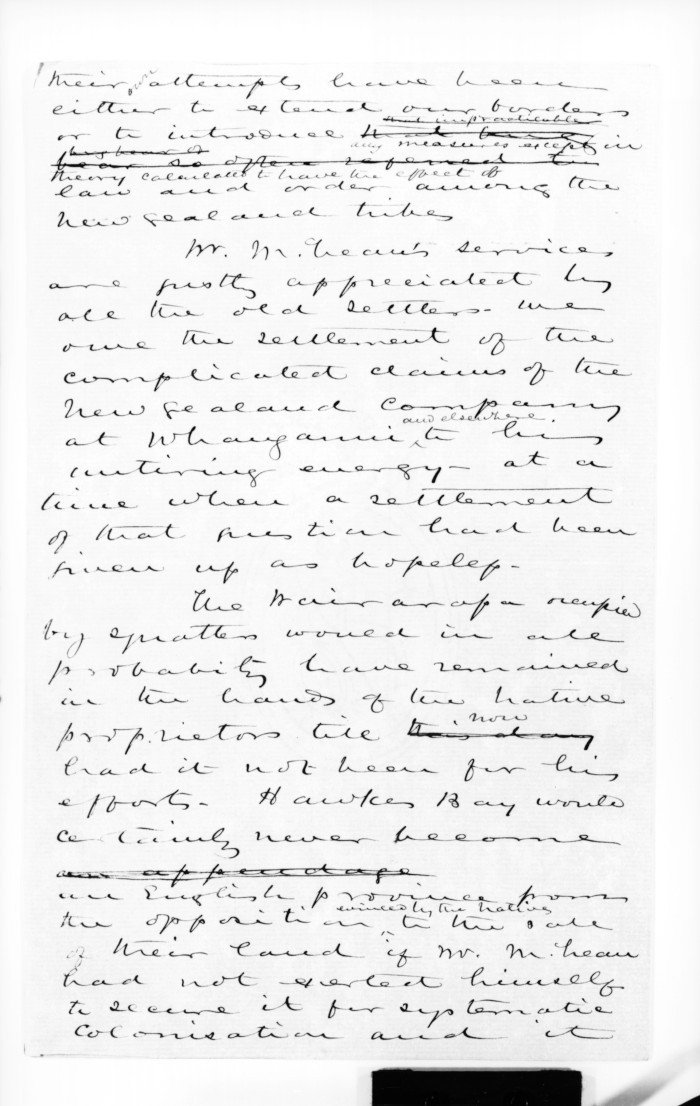 their own attempts have been
either to extend our borders
that impracticable
or to introduce that
any measures except in
hear so often referred to
theory calculated to have the effect of
law and order among the
New Zealand tribes
Mr. McLean's services
are justly appreciated by
all the old settlers - we
owe the settlement of the
complicated claims of the
New Zealand Company
and elsewhere
at Whanganui, to his
untiring energy - at a
time when a settlement
of that question had been
given up as hopeless -
The Wairarapa occupied
by squatters would in all
probabity have remained
in the hands of the native
proprietors till this day now
had it not been for his
efforts - Hawkes Bay would
certainly never become
an appendage
an English province from
evinced by the Natives
the opposition to the sale
of their land if Mr. McLean
had not exerted himself
to secure it for systematic
colonisation and it